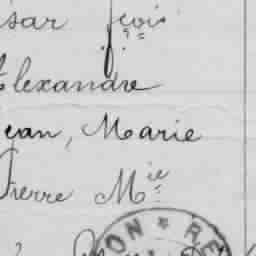 ésar fçois
Alexandre
Jean, Marie
Pierre Mie
ON * RE